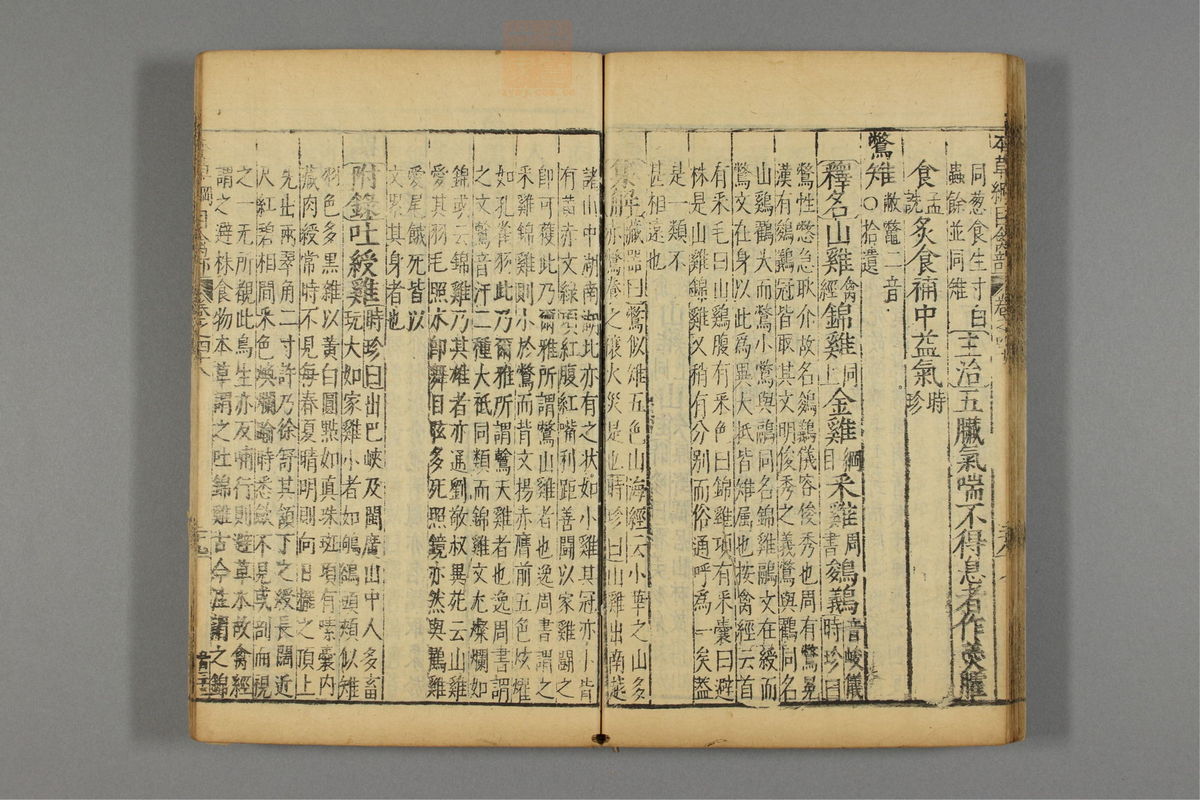 本草綱目禽部 卷之四十八
同葱食生寸白
蟲餘並同雉
主治五臟氣喘不得息者作羹臛
食孟詵炙食補中益氣時珍
鷩雉敝鼈二音○拾遺
釋名山雞禽經錦雞同上金雞綱目采雞周書鵔鸃音峻儀時珍曰
鷩性憋急耿介故名鵔鸃儀容俊秀也周有鷩冕
漢有鵔鸃冠皆取其文明俊秀之義鷩與鸐同名
山雞鸐大而鷩小鷩與鷊同名錦雞鷊文在綬而
鷩文在身以此為異大抵皆雉屬也按禽經云首
有采毛曰山雞腹有采色曰錦雞項有采囊曰避
株是山雞錦雞又稍有分別而俗通呼為一矣蓋
是一類不
甚相遠也
集解藏器曰鷩似雉五色山海經云小華之山多
赤鷩養之禳火災是也時珍曰山雞出南越
諸山中湖南湖北亦有之狀如小雞其冠亦小背
有黃赤文綠項紅腹紅嘴利距善鬬以家雞鬬之
即可獲此乃爾雅所謂鷩山雞者也逸周書謂之
采雞錦雞則小於鷩而背文揚赤膺前五色炫耀
如孔雀羽此乃爾雅所謂鶾天雞者也逸周書謂
之文鶾音汗二種大抵同類而錦雞文尤燦爛如
錦或云錦雞乃其雄者亦通劉敬叔異苑云山雞
愛其羽毛照水即舞目眩多死照鏡亦然與雞
愛尾餓死皆以
文累其身者也
附錄吐綬雞時珍曰出巴峽及閩廣山中人多畜
玩大如家雞小者如鴝鵒頭頰似雉
羽色多黑雜以黃白圓點如真珠斑項有嗉囊內
藏肉綬常時不見每春夏晴明則向日擺之頂上
先出兩翠角二寸許乃徐舒其頷下之綬長闊近
尺紅碧相間采色煥爛踰時悉斂不見或剖而視
之一無所覩此鳥生亦反哺行則避草木故禽經
謂之避株食物本草謂之吐錦雞古今注謂之錦